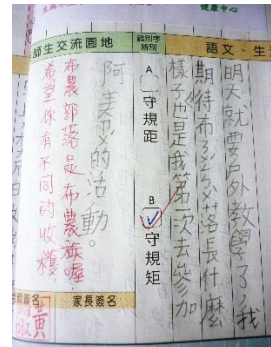 健康中心
語文、生
錯別字辨別
師生交流園地
明天就要戶外教學了,我
期待布ㄋㄨㄥˊ部落長什麼
樣子也是我第一次去參加
阿美ㄗㄨˊ的活動。
A
守規距
B
守規矩
布農部落是布農族喔
希望你有不同的收穫
家長簽名
黃